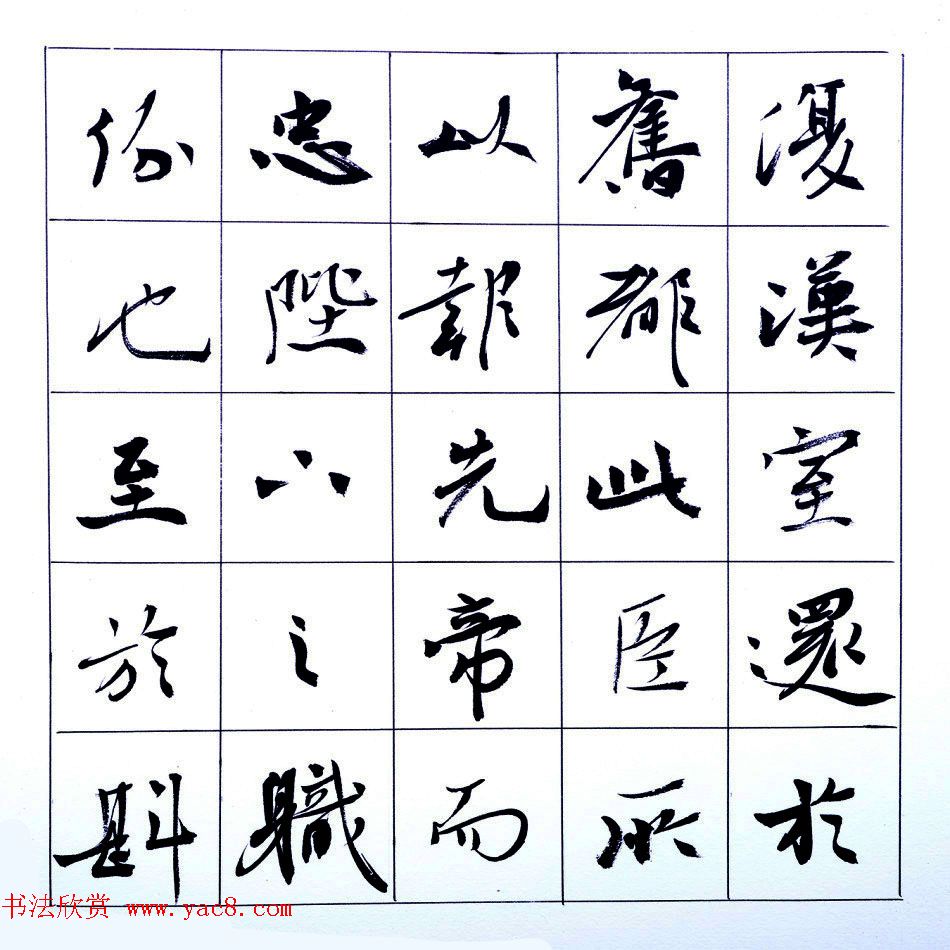 復漢室還於
舊都此臣所
以報先帝而
忠陛下之職
份也至於斟
书法欣赏 www.yac8.com